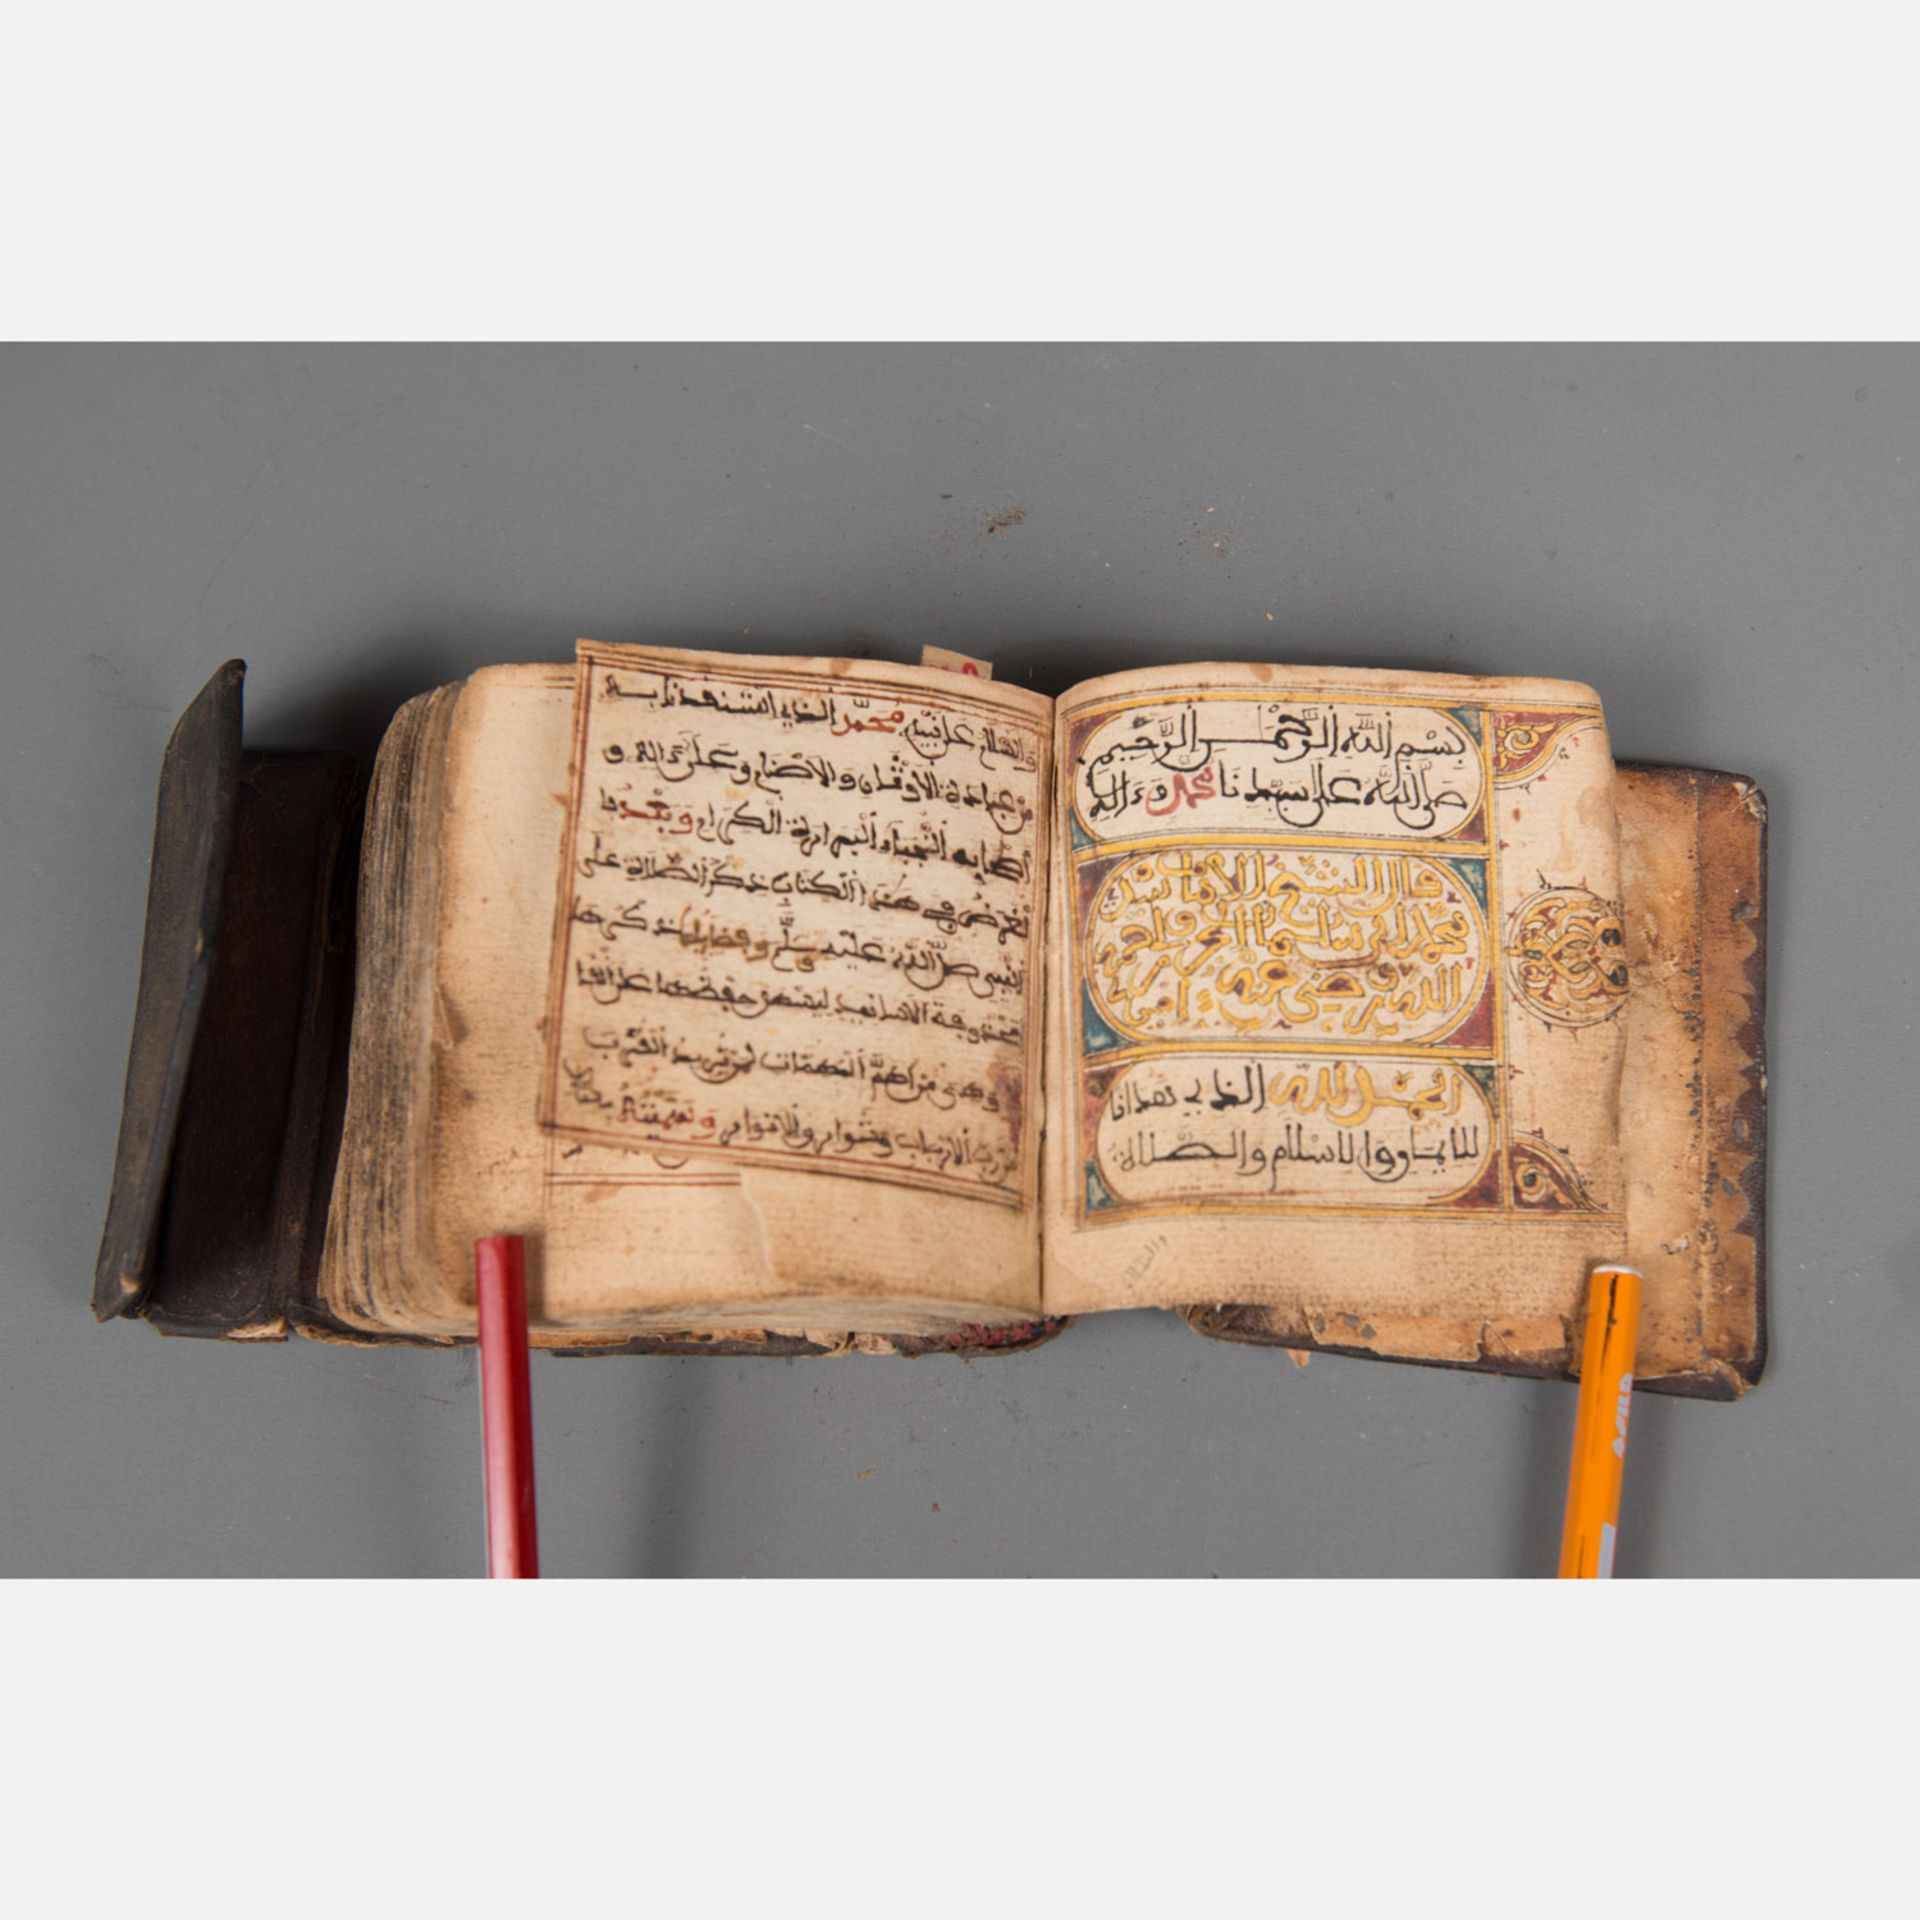 بسم الله الرحمن الرحيم
صلى الله على سيدنا محمد وءاله
قال الشيخ الامام
محمد بن سليمان الجزولي رحمه
الله ورضي عنه ءامين
الحمد لله الذي هدانا
للايمان والاسلام والصلاة
والصلاة
والسلام على نبيه محمد الذي استنقذنا به
من عبادة الاوثان والاصنام وعلى ءاله و
اصحابه النجباء البررة الكرام وبعد
فالغرض في هذا الكتاب ذكر الصلاة على
النبي صلى الله عليه وسلم وفضايلها نذكرها
محذوفة الاسانيد ليسهل حفظها على القا
وهي من اهم المهمات لمن يريد القرب
من رب الارباب وسميته